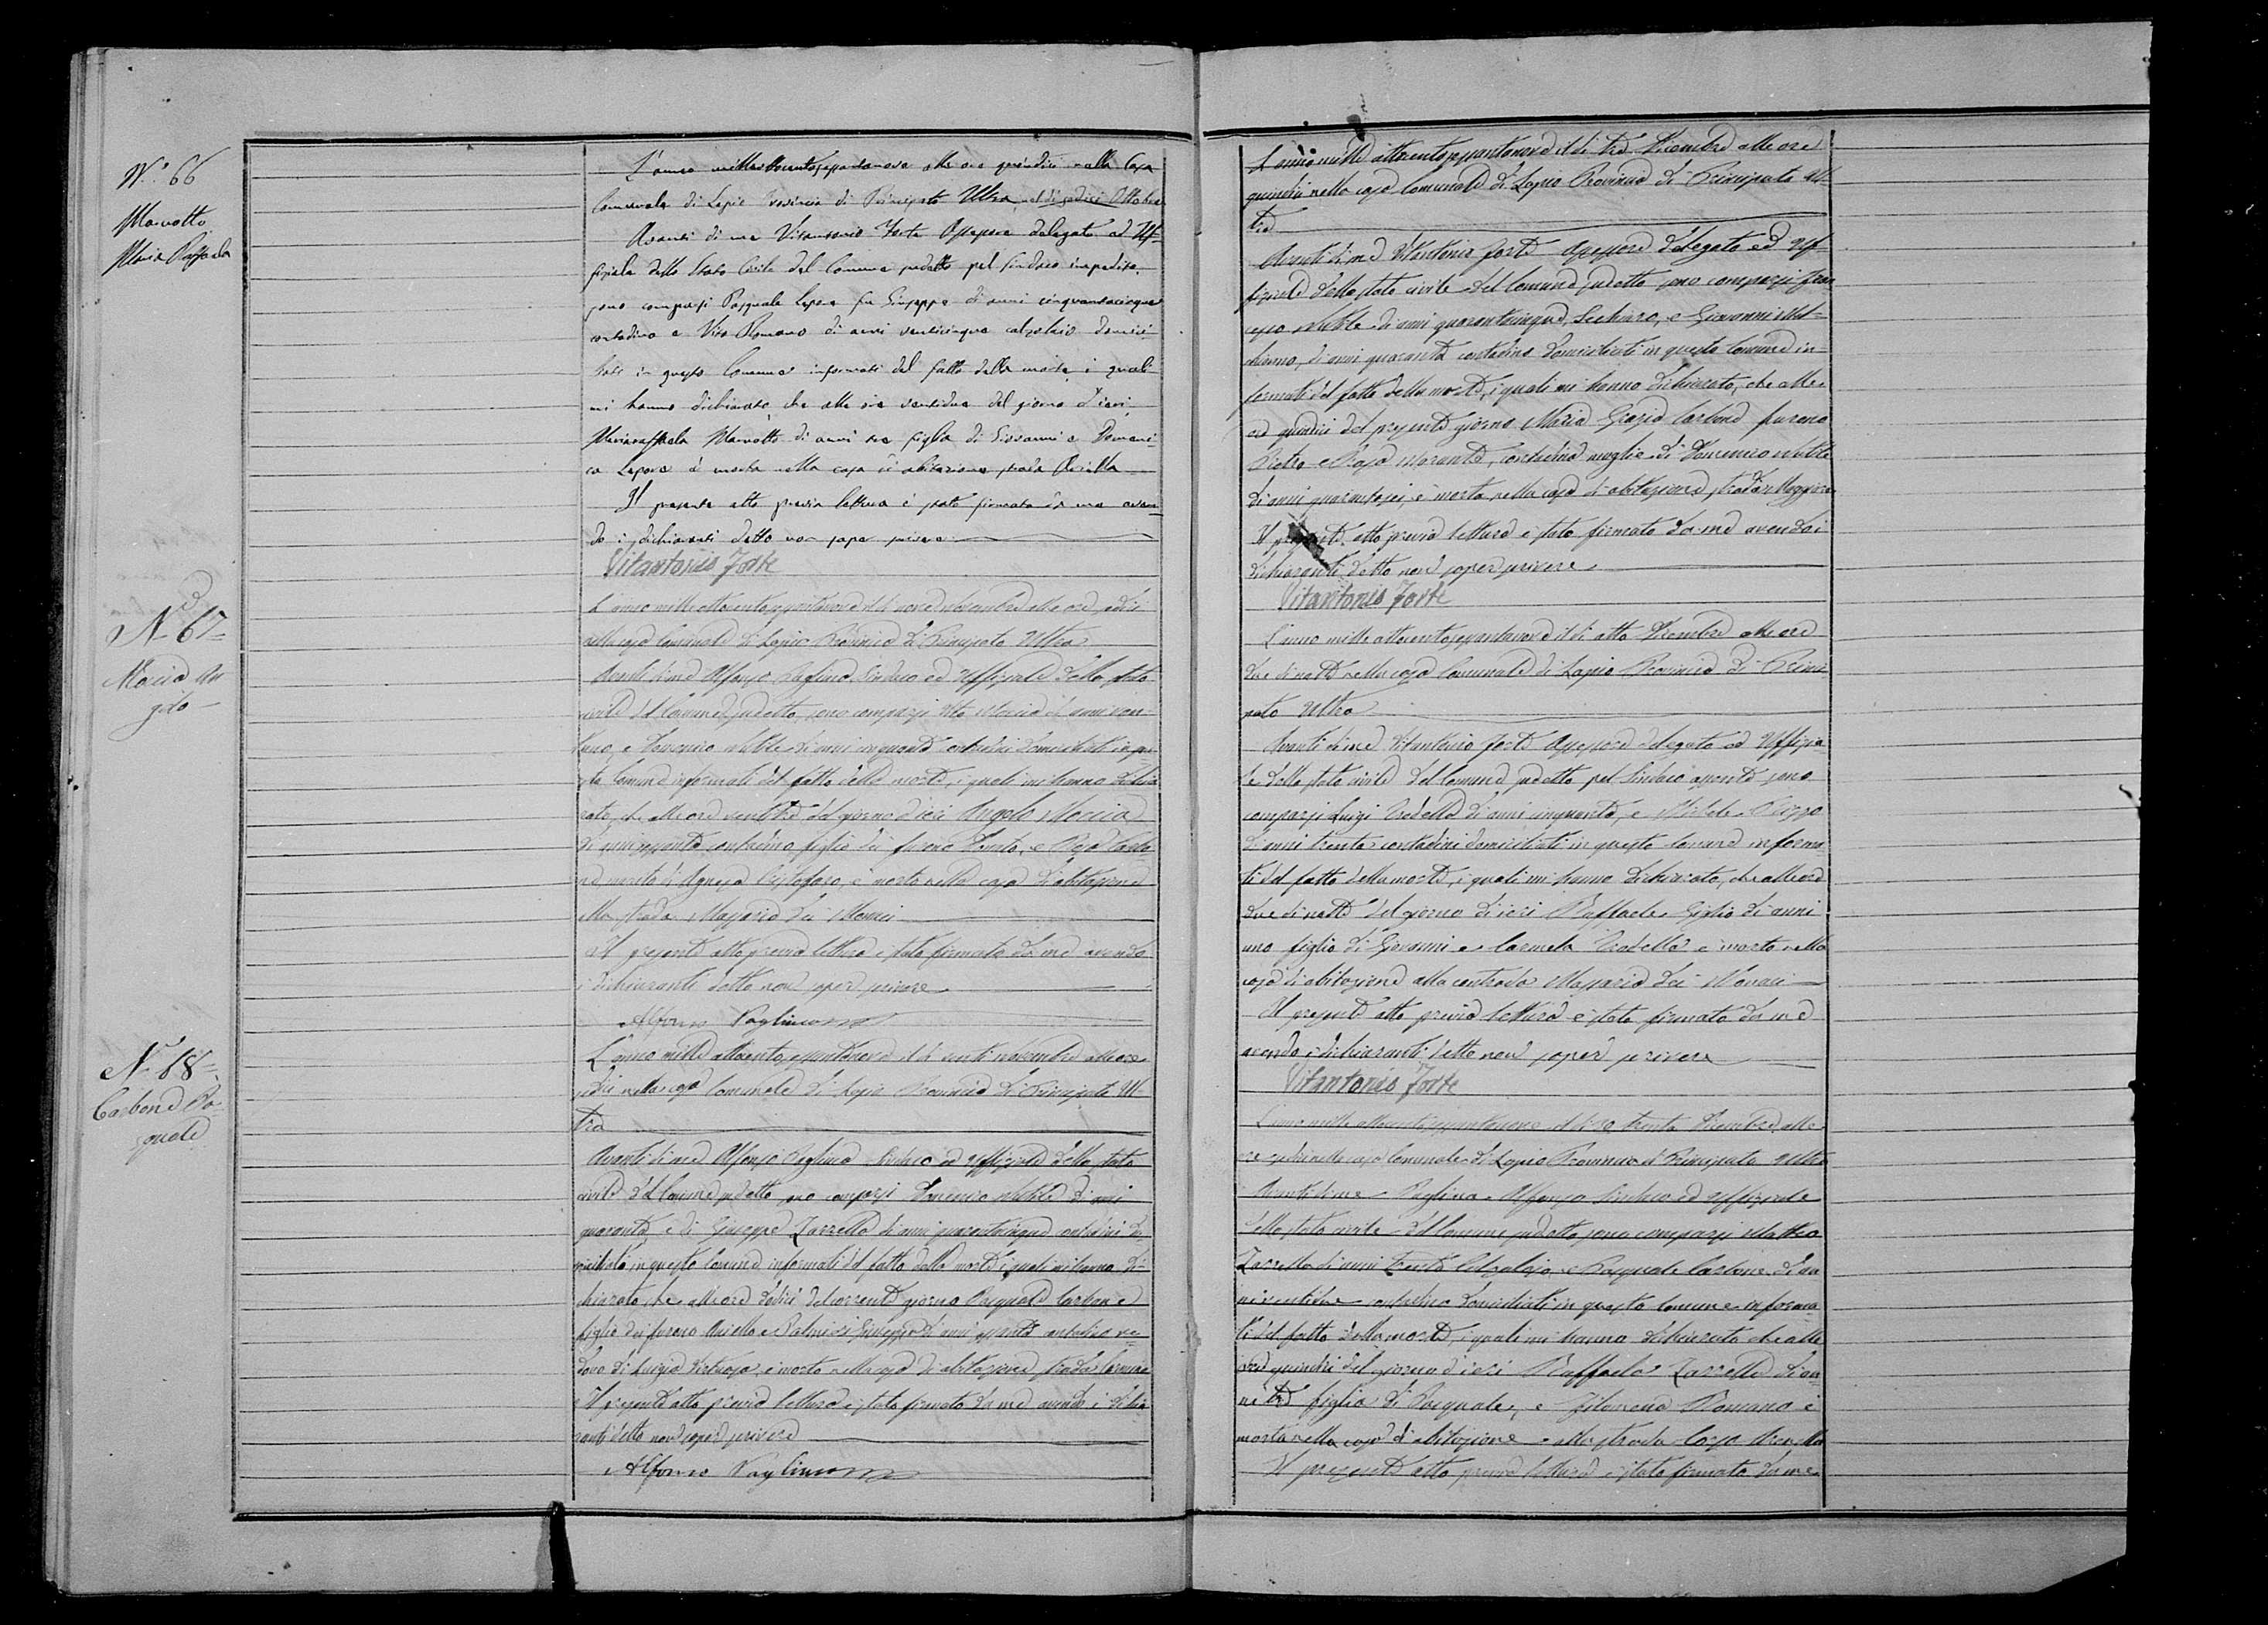 N.º 66
Marotto
Maria Raffaela
L'anno milleottocentosessantanove alle ore quindici nella Casa
Comunale di Lapio Provincia di Principato Ultra, nel dì sedici Ottobre
Avanti di me Vitantonio Forte Assessore delegato ed Uf=
fiziale dello Stato Civile del Comune sudetto pel Sindaco impedito,
sono comparsi Pasquale Lepore fu Giuseppe di anni cinquantacinque
contadino e Vito Romano di anni venticinque calzolaio domici-
liati in questo Comune informati del fatto della morte, i quali
mi hanno dichiarato, che alle ore ventidue del giorno d'ieri
Mariaraffaela Marotto di anni tre figlia di Giovanni e Domeni-
ca Lepore è morta nella casa di abitazione strada
Il presente atto previa lettura è stato firmato da me aven-
do i dichiaranti detto non saper scrivere
Vitantonio Forte
N. 67=
Moccia An
gelo
L'anno mille ottocentosessantanove il dì nove novembre alle ore sedici
nella casa Comunale di Lapio Provincia di Principato Ultra
Avanti di me Alfonso Paglinca Sindaco ed Uffiziale dello stato
civile del Comune sudetto, sono comparsi Vito Moccia di anni ven-
tuno, e Domenico Nobile di anni cinquanta contadini domiciliati in que
sto Comune informati del fatto della morte, i quali mi hanno dichia
rato, che alle ore ventitre del giorno d'ieri Angelo Moccia
di anni sessanta contadino figlio dei furono Donato, e Rosa Carbo=
ne, marito di Agnesa Cristofaro, è morto nella casa di abitazione
alla strada Massaria dei Monaci
Il presente atto previa lettura è stato firmato da me avendo
i dichiaranti detto non saper scrivere
Alfonso Paglinca
N. 68=
Carbone Pa
squale
L'anno mille ottocentosessantanove il dì venti novembre alle ore
sedici nella casa Comunale di Lapio Provincia di Principato Ul-
tra
Avanti di me Alfonso Paglinca Sindaco ed Uffiziale dello stato
civile del Comune sudetto, sono comparsi Domenico Nobile di anni
quaranta, e di Giuseppe Zarrella di anni quarantacinque contadini do-
miciliati in questo Comune informati del fatto della morte i quali mi hanno di-
chiarato, che alle ore dodici del corrente giorno Pasquale Carbone
figlio dei furono Aniello e Giuseppa di anni sessanta contadino ve=
dovo di Luigia Virtuoso, è morto nella casa di abitazione strada
Il presente atto previa lettura è stato firmato da me avendo i dichia
ranti detto non saper scrivere
Alfonso Paglinca
L'anno mille ottocentosessantanove il dì tre Dicembre alle ore
quindici nella casa Comunale di Lapio Provincia di Principato Ul-
tra
Avanti di me Vitantonio Forte Assessore delegato ed Uf-
fiziale dello stato civile del Comune sudetto sono comparsi Fran
cesco Nobile di anni quarantacinque, e Giovanni
di anni quaranta contadino domiciliati in questo Comune in-
formati del fatto della morte, i quali mi hanno dichiarato, che alle
ore quindici del presente giorno Maria Grazia Carbone furono
Pietro e Rosa Morante, contadina moglie di Domenico Nobile
di anni quarantasei, è morta nella casa di abitazione, strada Maggiore
Il presente atto previa lettura è stato firmato da me avendo i
dichiaranti detto non saper scrivere
Vitantonio Forte
L'anno mille ottocentosessantanove il dì otto Dicembre alle ore
due di notte nella casa Comunale di Lapio Provincia di Princi
pato Ultra
Avanti di me Vitantonio Forte Assessore delegato ed Uffizia
le dello stato civile del Comune sudetto pel Sindaco assente sono
comparsi Luigi di anni cinquanta, e Michele
di anni trenta contadini domiciliati in questo Comune informa
ti del fatto della morte, i quali mi hanno dichiarato, che alle ore
due di notte del giorno di ieri Raffaele Giglio di anni
uno figlio di Giovanni e Carmela è morto nella
casa di abitazione alla contrada Massaria dei Monaci
Il presente atto previa lettura è stato firmato da me
avendo i dichiaranti detto non saper scrivere
Vitantonio Forte
L'anno mille ottocentosessantanove il dì 30 trenta Dicembre alle
ore sedici nella casa Comunale di Lapio Provincia di Principato Ultra
Avanti di me Paglinca Alfonso Sindaco ed Uffiziale
dello stato civile del Comune sudetto sono comparsi Matteo
Zarrella di anni trenta Calzolajo e Pasquale Carbone di an
ni contadino domiciliati in questo Comune informa
ti del fatto della morte, i quali mi hanno dichiarato che alle
ore quindici del giorno d'ieri Raffaela Zarrella di an
ni tre figlia di Pasquale, e Filomena Romano è
morta nella casa d'abitazione alla strada
Il presente atto, previa lettura è stato firmato da me